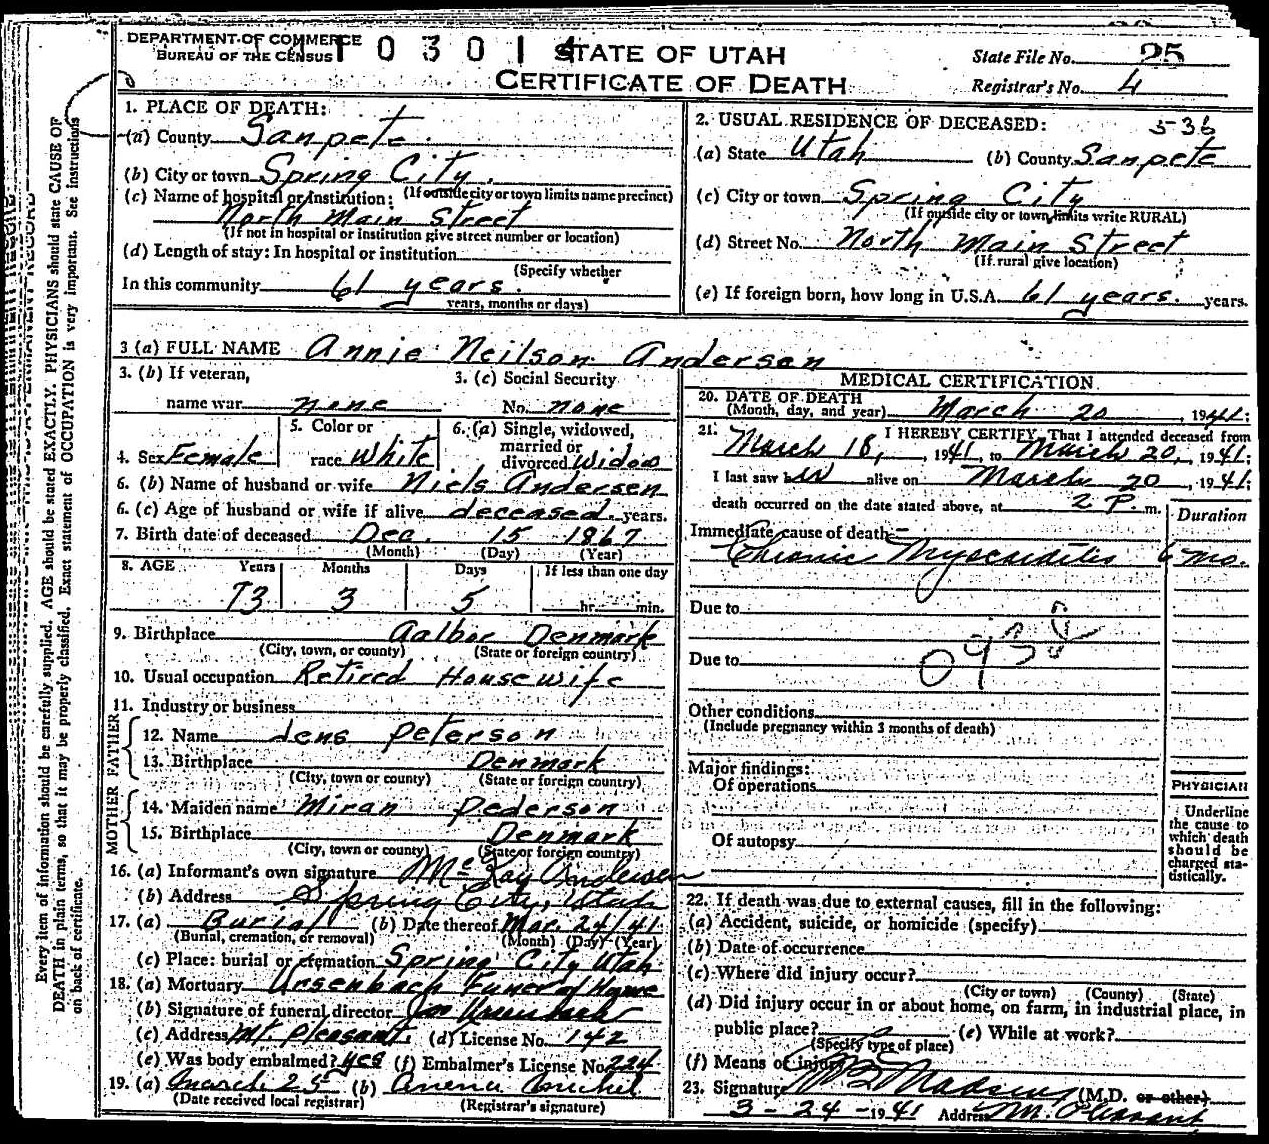 DEPARTMENT OF COMMERCE
BUREAU OF THE CENSUS
STATE OF UTAH
CERTIFICATE OF DEATH
State File No. 25
Registrar's No. 4
1. PLACE OF DEATH:
(a) County Sanpete
(b) City or town Spring City.
(If outside city or town limits name precinct)
(c) Name of hospital or institution:
North Main Street
(If not in hospital or institution give street number or location)
(d) Length of stay: In hospital or institution
(Specify whether
In this community 61 years.
years, months or days)
2. USUAL RESIDENCE OF DECEASED: 536
(a) State Utah (b) County Sanpete
(c) City or town Spring City
(If outside city or town limits write RURAL)
(d) Street No. North Main Street
(If rural give location)
(e) If foreign born, how long in U.S.A. 61 years. years.
3 (a) FULL NAME Annie Neilson Andersen
3. (b) If veteran, name war none
3. (c) Social Security No. none
4. Sex Female
5. Color or race White
6. (a) Single, widowed, married or divorced Widow
6. (b) Name of husband or wife Niels Andersen
6. (c) Age of husband or wife if alive deceased. years.
7. Birth date of deceased Dec. 15 1867
(Month) (Day) (Year)
8. AGE Years Months Days If less than one day
73 3 5 hr. min.
9. Birthplace Aalbor Denmark
(City, town, or county) (State or foreign country)
10. Usual occupation Retired Housewife
11. Industry or business
FATHER
12. Name Jens Peterson
13. Birthplace Denmark
(City, town or county) (State or foreign country)
MOTHER
14. Maiden name Miran Pederson
15. Birthplace Denmark
(City, town or county) (State or foreign country)
16. (a) Informant's own signature McKay Andersen
(b) Address Spring City, Utah
17. (a) Burial (b) Date thereof Mar. 24/41
(Burial, cremation, or removal) (Month) (Day) (Year)
(c) Place: burial or cremation Spring City Utah
18. (a) Mortuary Ursenbach Funeral Home
(b) Signature of funeral director Ursenbach
(c) Address Mt. Pleasant. (d) License No. 142
(e) Was body embalmed? yes (f) Embalmer's License No. 224
19. (a) March 25 (b)
(Date received local registrar) (Registrar's signature)
MEDICAL CERTIFICATION
20. DATE OF DEATH
(Month, day, and year) March 20, 1941;
21. I HEREBY CERTIFY, That I attended deceased from
March 18, 1941, to March 20, 1941;
I last saw alive on March 20, 1941;
death occurred on the date stated above, at 2 P. m.
Duration
Immediate cause of death
Chronic Myocarditis 6 mo.
Due to
093
Due to
Other conditions
(Include pregnancy within 3 months of death)
Major findings:
Of operations
Of autopsy
PHYSICIAN
Underline
the cause to
which death
should be
charged sta-
tistically.
22. If death was due to external causes, fill in the following:
(a) Accident, suicide, or homicide (specify)
(b) Date of occurrence
(c) Where did injury occur?
(City or town) (County) (State)
(d) Did injury occur in or about home, on farm, in industrial place, in
public place? (e) While at work?
(Specify type of place)
(f) Means of injury
23. Signature Madsen (M.D. or other)
3-24-1941 Address Mt. Pleasant
Every item of information should be carefully supplied. AGE should be stated EXACTLY. PHYSICIANS should state CAUSE OF
DEATH in plain terms, so that it may be properly classified. Exact statement of OCCUPATION is very important. See instructions
on back of certificate.